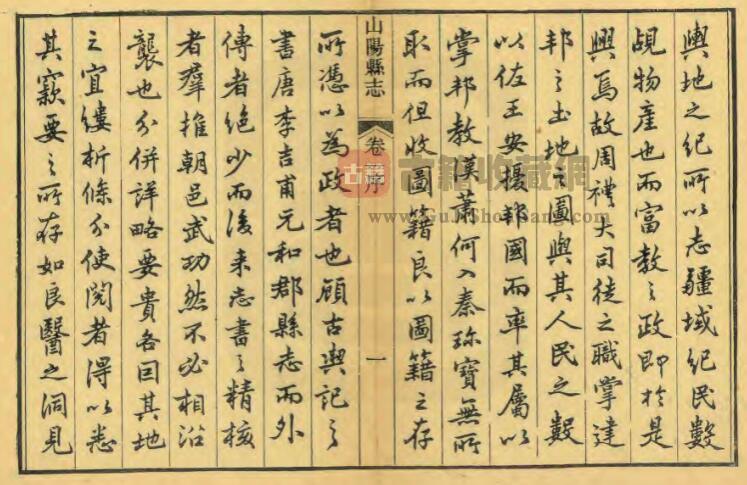 輿地之紀所以志疆域紀民數
覘物產也而富教之政即於是
興焉故周禮大司徒之職掌建
邦之土地之圖與其人民之數
以佐王安擾邦國而率其屬以
掌邦教漢蕭何入秦珍寶無所
取而但收圖籍良以圖籍之存
山陽縣志 卷 序 一
所憑以為政者也顧古輿記之
書唐李吉甫元和郡縣志而外
傳者絕少而後來志書之精核
者羣推朝邑武功然不必相沿
襲也分併詳略要貴各因其地
之宜縷析條分使閱者得以悉
其窾要之所存如良醫之洞見
古籍
古籍收藏網
www.GuJiShouCang.com